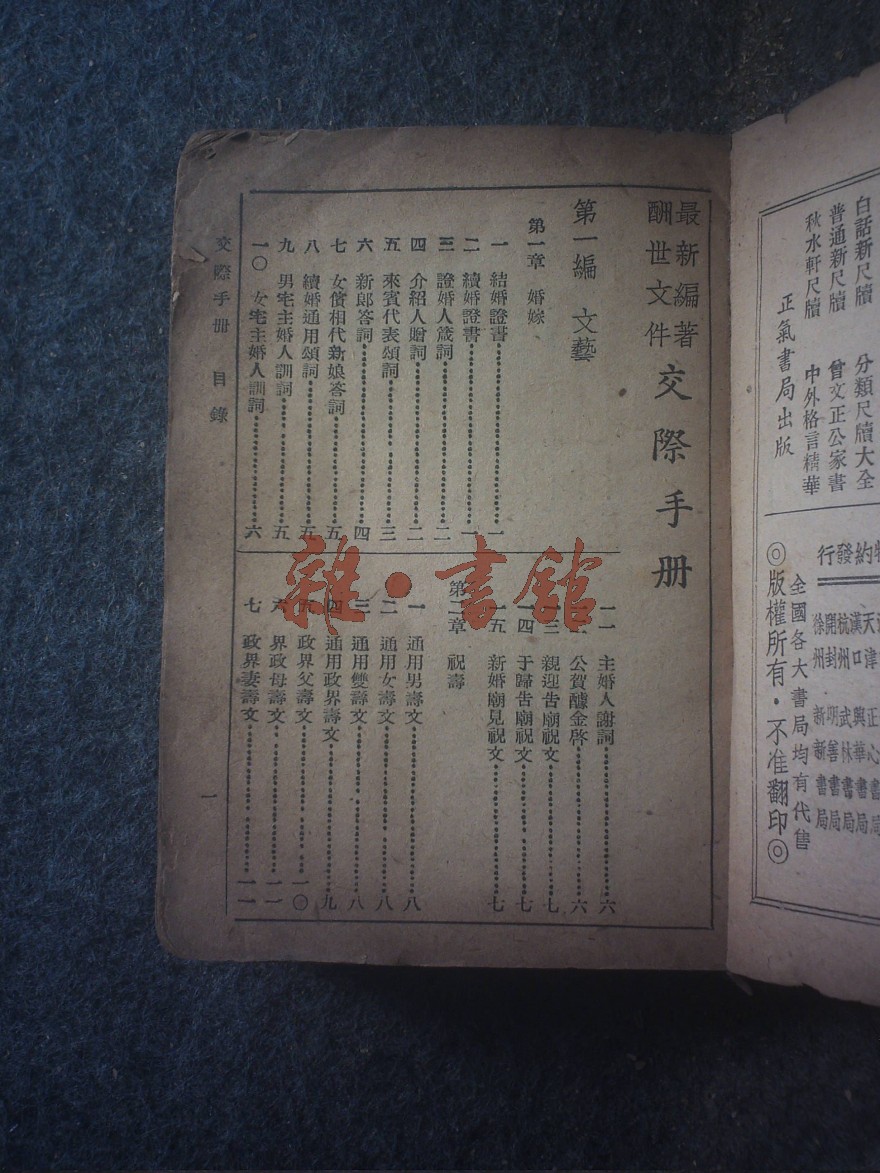 白話新尺牘 分類尺牘大全
普通新尺牘 曾文正公家書
秋水軒尺牘 中外格言精華
正氣書局出版
約發行
天津 正心書局
漢口 興華書局
杭州 武林書局
開封 明善書局
徐州 新新書局
全國各大書局均有代售
◎版權所有·不准翻印◎
最新編著
酬世文件
交際手册
第一編 文藝
第一章 婚嫁
一 結婚證書 一
二 續婚證書 一
三 證婚人箴詞 二
四 介紹人贈詞 二
五 來賓代表頌詞 三
六 新郎答詞 四
七 女儐相代新娘答詞 五
八 續婚通用頌詞 五
九 男宅主婚人訓詞 五
一〇 女宅主婚人訓詞 六
一一 主婚人謝詞 六
公賀醵金啓 六
一三 親迎告廟祝文 七
一四 于歸告廟祝文 七
一五 新婚廟見祝文 七
第二章 祝壽
一 通用男壽文 八
二 通用女壽文 八
三 通用雙壽文 八
四 通用政界壽文 九
五 政界父壽文 一〇
六 界政母壽文 一一
七 政界妻壽文 一一
交際手册 目錄
一
雜·書館